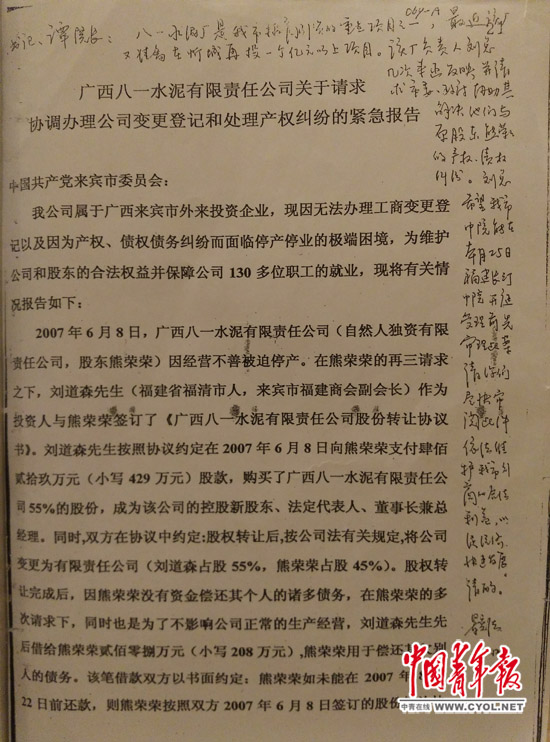 书记、谭院长：
八一水泥厂是我市招商引资的重点项目之一，最近
又准备在忻城再投一个亿元以上项目。该厂负责人刘总
几次来函反映并请
求市委、政府协助其
解决他们与
原股东熊荣荣
的产权、债权
纠纷。刘总
希望我市
中院能在
本月25日
福建长汀
中院开庭
受理前先
审理
请
依法维
护我市外
商的合法
利益，以
广西八一水泥有限责任公司关于请求
协调办理公司变更登记和处理产权纠纷的紧急报告
中国共产党来宾市委员会：
我公司属于广西来宾市外来投资企业，现因无法办理工商变更登
记以及因为产权、债权债务纠纷而面临停产停业的极端困境，为维护
公司和股东的合法权益并保障公司 130 多位职工的就业，现将有关情
况报告如下：
2007 年 6 月 8 日，广西八一水泥有限责任公司（自然人独资有限
责任公司，股东熊荣荣）因经营不善被迫停产。在熊荣荣的再三请求
之下，刘道森先生（福建省福清市人，来宾市福建商会副会长）作为
投资人与熊荣荣签订了《广西八一水泥有限责任公司股份转让协议
书》。刘道森先生按照协议约定在 2007 年 6 月 8 日向熊荣荣支付肆佰
贰拾玖万元（小写 429 万元）股款，购买了广西八一水泥有限责任公
司 55%的股份，成为该公司的控股新股东、法定代表人、董事长兼总
经理。同时,双方在协议中约定:股权转让后,按公司法有关规定,将公司
变更为有限责任公司（刘道森占股 55%，熊荣荣占股 45%）。股权转
让完成后，因熊荣荣没有资金偿还其个人的诸多债务，在熊荣荣的多
次请求下，同时也是为了不影响公司正常的生产经营，刘道森先生先
后借给熊荣荣贰佰零捌万元（小写 208 万元）,熊荣荣用于偿还其欠别
人的债务。该笔借款双方以书面约定：熊荣荣如未能在 2007 年
22 日前还款，则熊荣荣按照双方 2007 年 6 月 8 日签订的股份
中国青年报
中青在线 WWW.CYOL.NET